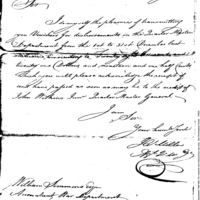 Sir
I enjoy the pleasure of transmitting
you Vouchers for disbursements in the Quarter Master
Department from the 1st to 31st December last
inclusive, amounting to
twenty one Dollars and nineteen and one half Cents
Which you will please acknowledge the receipt of
and have passed as soon as may be to the credit of
John Wilkins Junr Quarter Master General
I am
Sir
Your humb Servt
William Simmons esqr
Accountant War Department